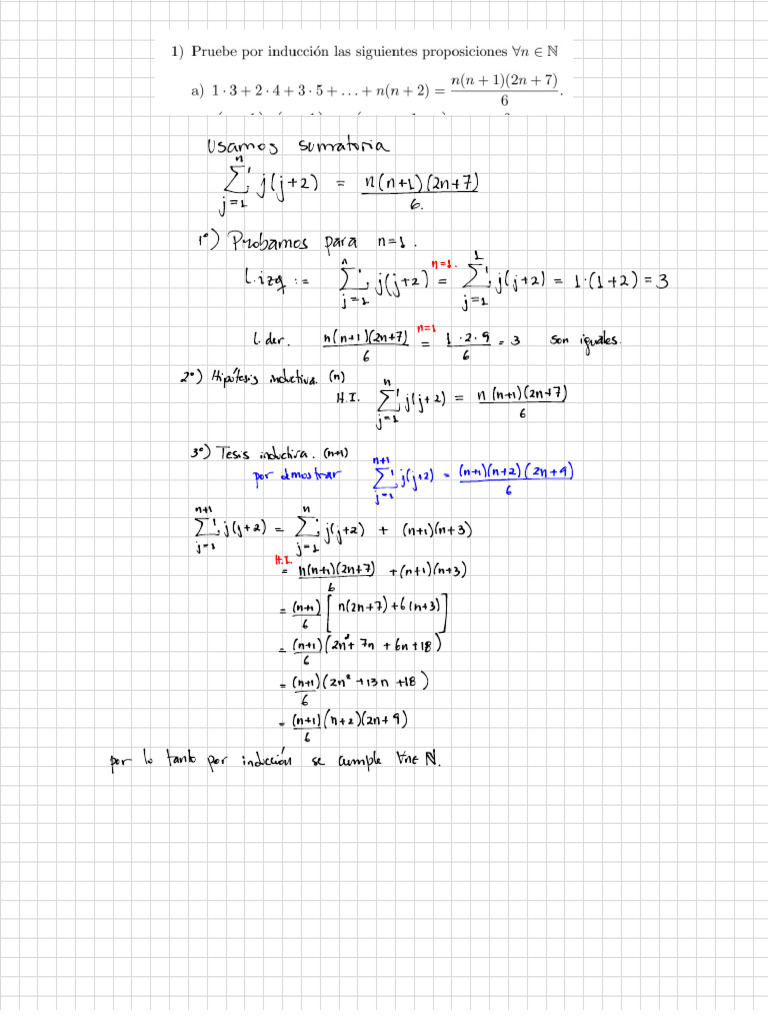 1) Pruebe por inducción las siguientes proposiciones ∀n ∈ ℕ
a) 1 · 3 + 2 · 4 + 3 · 5 + … + n(n + 2) = n(n + 1)(2n + 7)/6.
Usamos sumatoria
∑_{j=1}^{n} j(j+2) = n(n+1)(2n+7)/6.
1°) Probamos para n=1.
L.izq := ∑_{j=1}^{n} j(j+2) =^{n=1.} ∑_{j=1}^{1} j(j+2) = 1·(1+2) = 3
l.der. n(n+1)(2n+7)/6 =^{n=1} 1·2·9/6 = 3 son iguales.
2°) Hipótesis inductiva. (n)
H.I. ∑_{j=1}^{n} j(j+2) = n(n+1)(2n+7)/6
3°) Tesis inductiva. (n+1)
por dmostrar ∑_{j=1}^{n+1} j(j+2) = (n+1)(n+2)(2n+9)/6
∑_{j=1}^{n+1} j(j+2) = ∑_{j=1}^{n} j(j+2) + (n+1)(n+3)
=^{H.I.} n(n+1)(2n+7)/6 + (n+1)(n+3)
= (n+1)/6 [n(2n+7)+6(n+3)]
= (n+1)/6 (2n²+7n+6n+18)
= (n+1)/6 (2n²+13n+18)
= (n+1)/6 (n+2)(2n+9)
por lo tanto por inducción se cumple ∀n∈ ℕ.